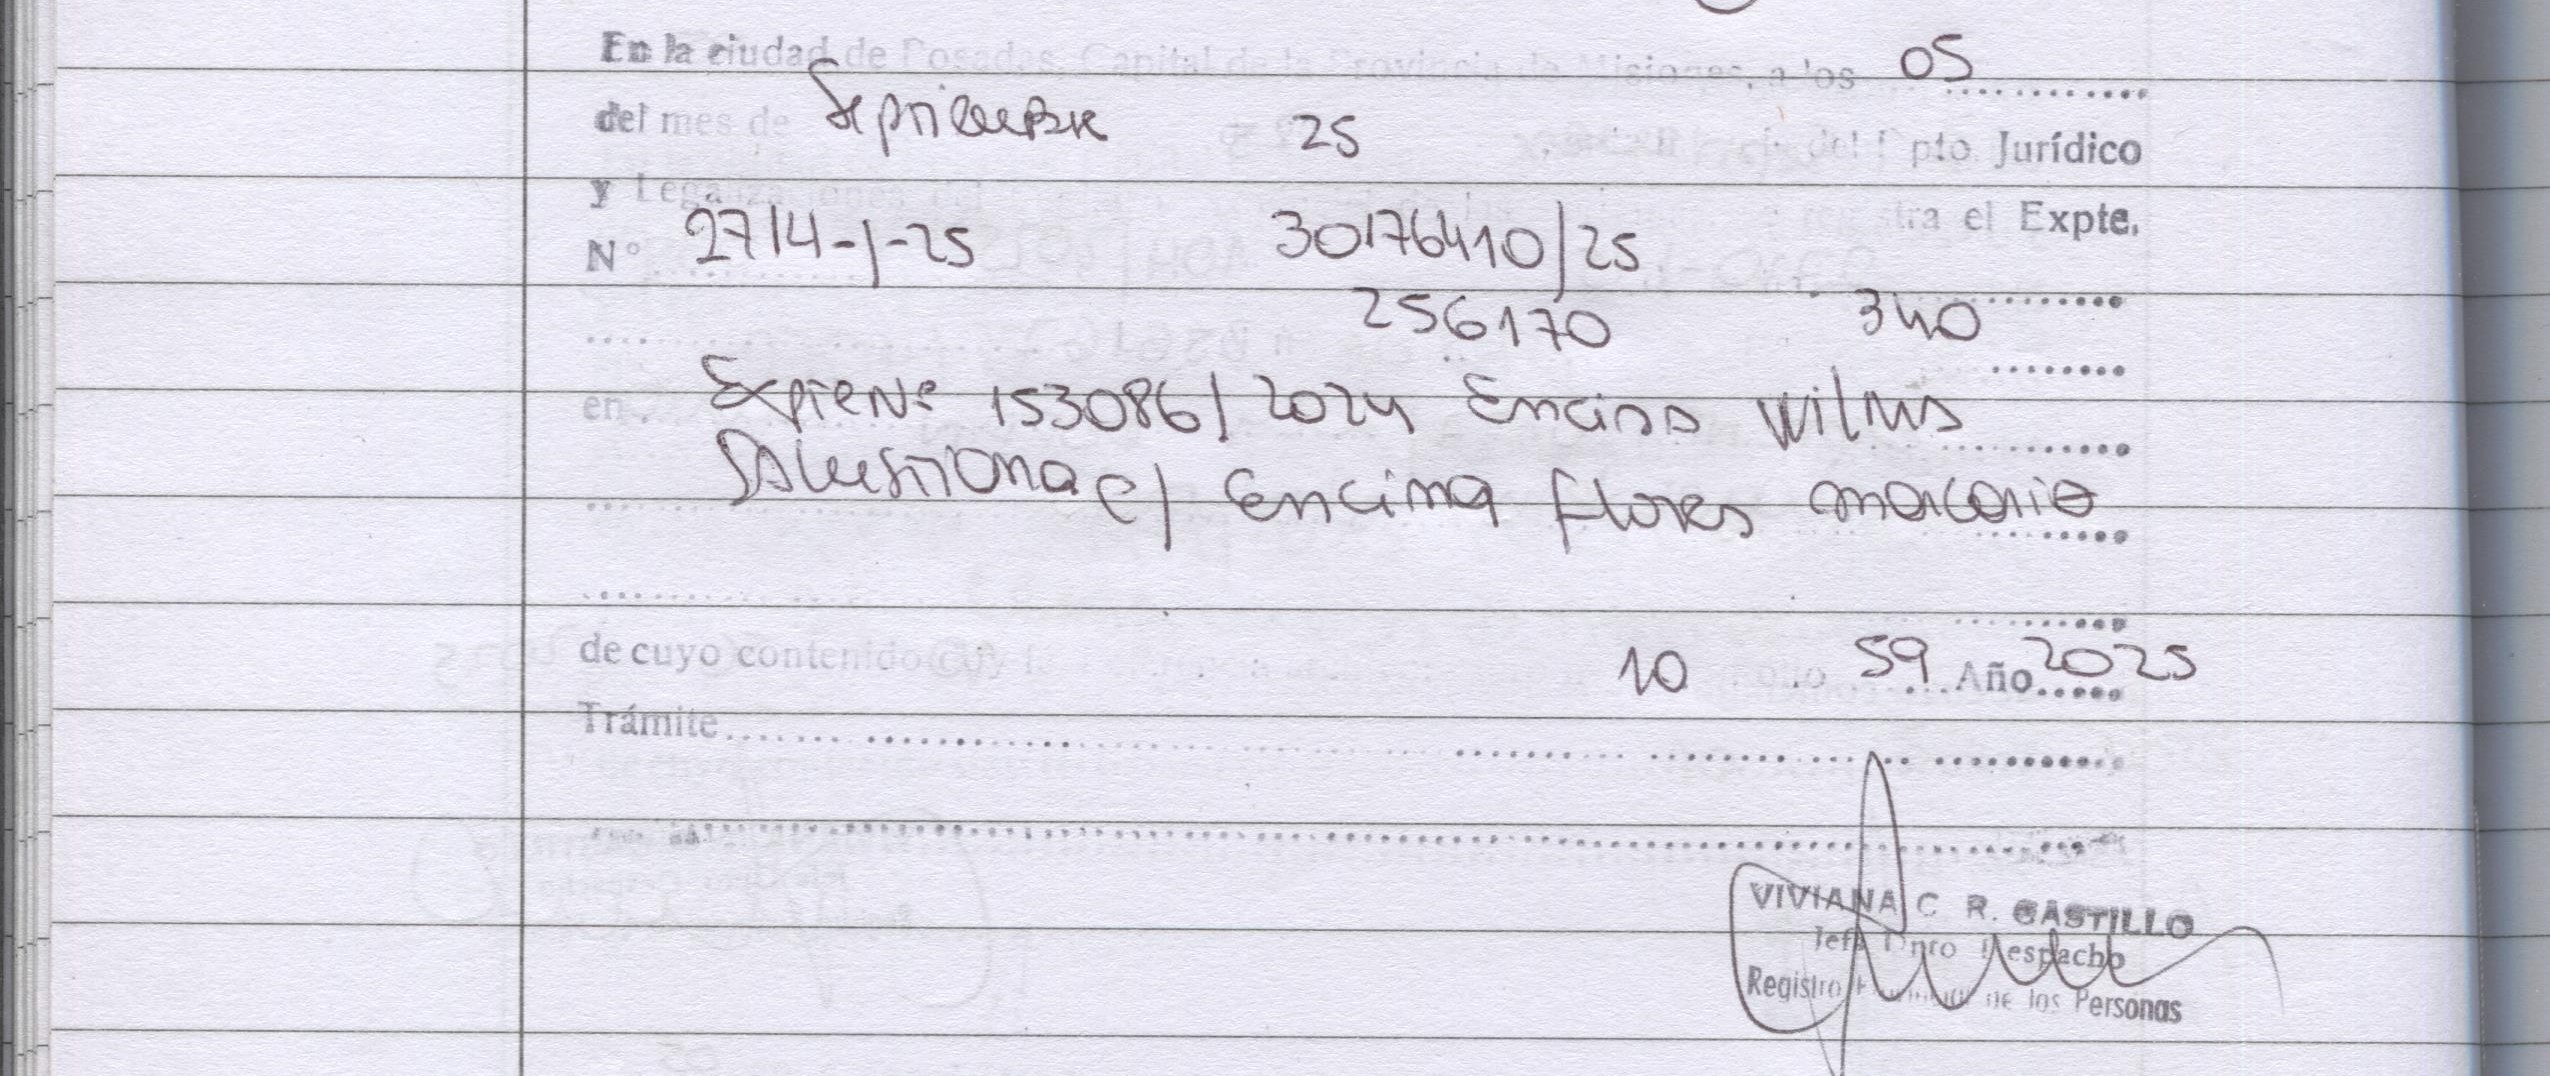 En la ciudad de Posadas, Capital de la Provincia de Misiones, a los 05
del mes de Septiembre 25 del Dpto. Jurídico
y Legalizaciones del registra el Expte.
N° 2714-J-25 30176410/25
256170 340
en Expte N° 153086/2024 Enciso Wilma
Salustiana c/ Encina Flores Macario
de cuyo contenido 10 Folio 59 Año 2025
Trámite
VIVIANA C. R. CASTILLO
Jefa Dpto Despacho
Registro Provincial de los Personas